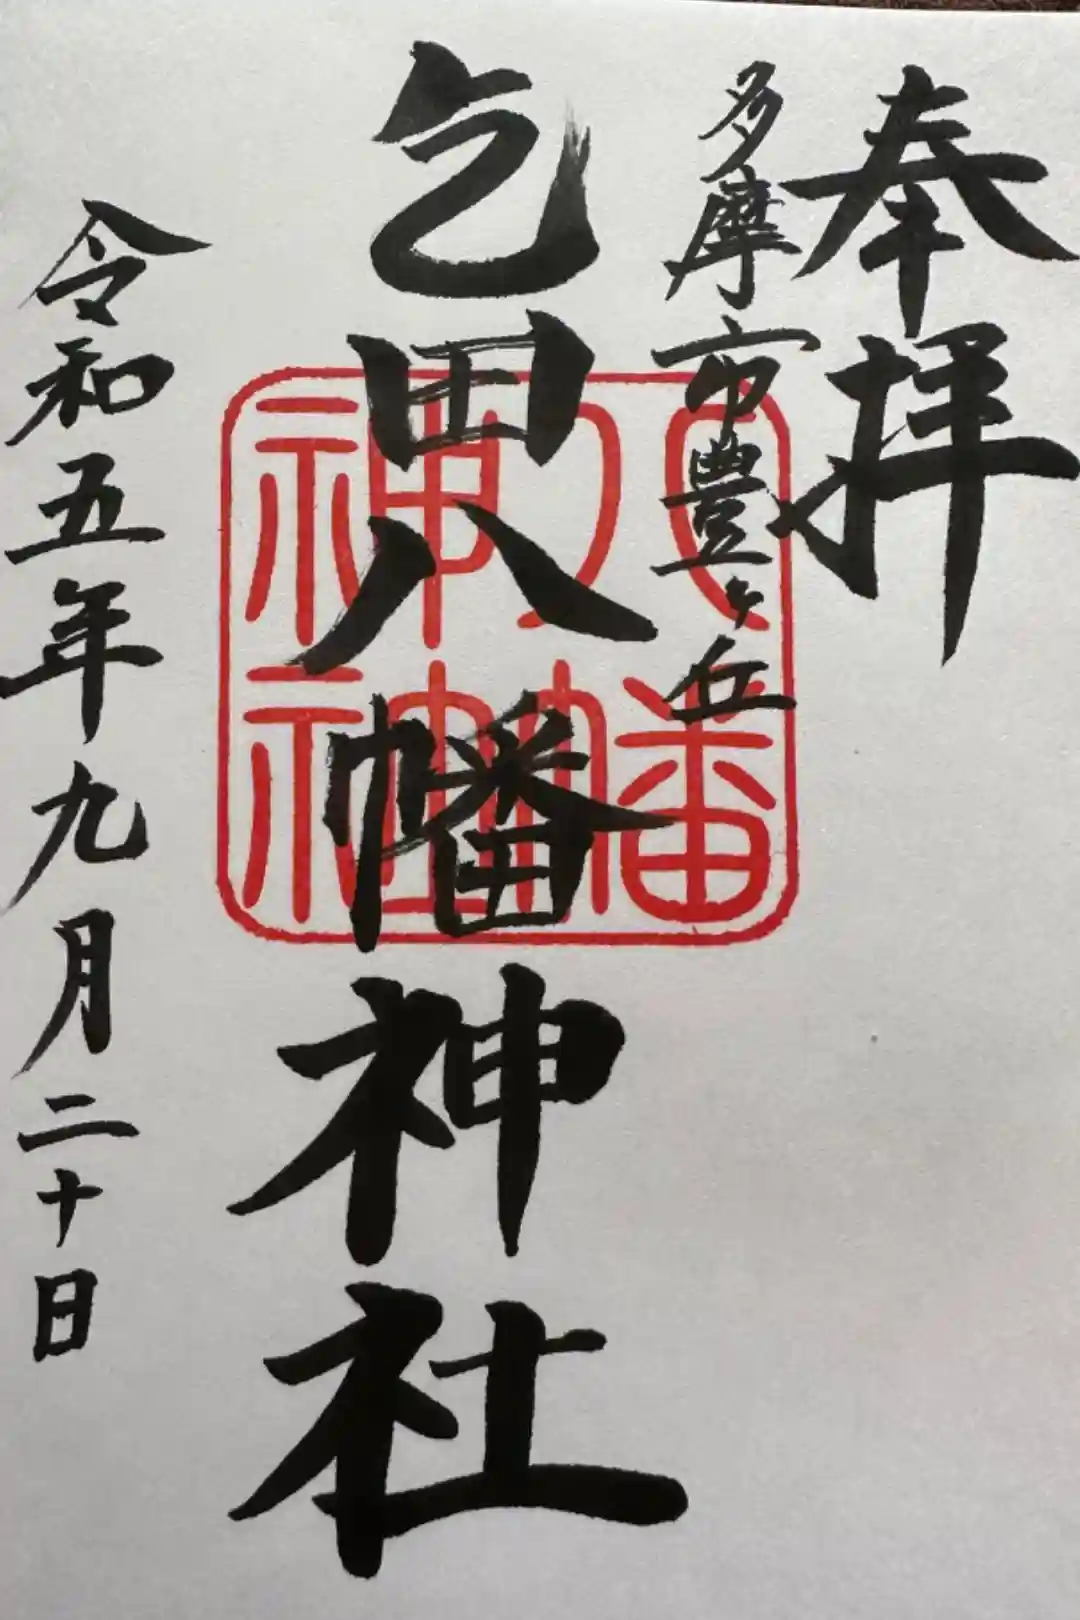 奉拝
多摩市豊ヶ丘
乞田八幡神社
八幡
神社
令和五年九月二十日